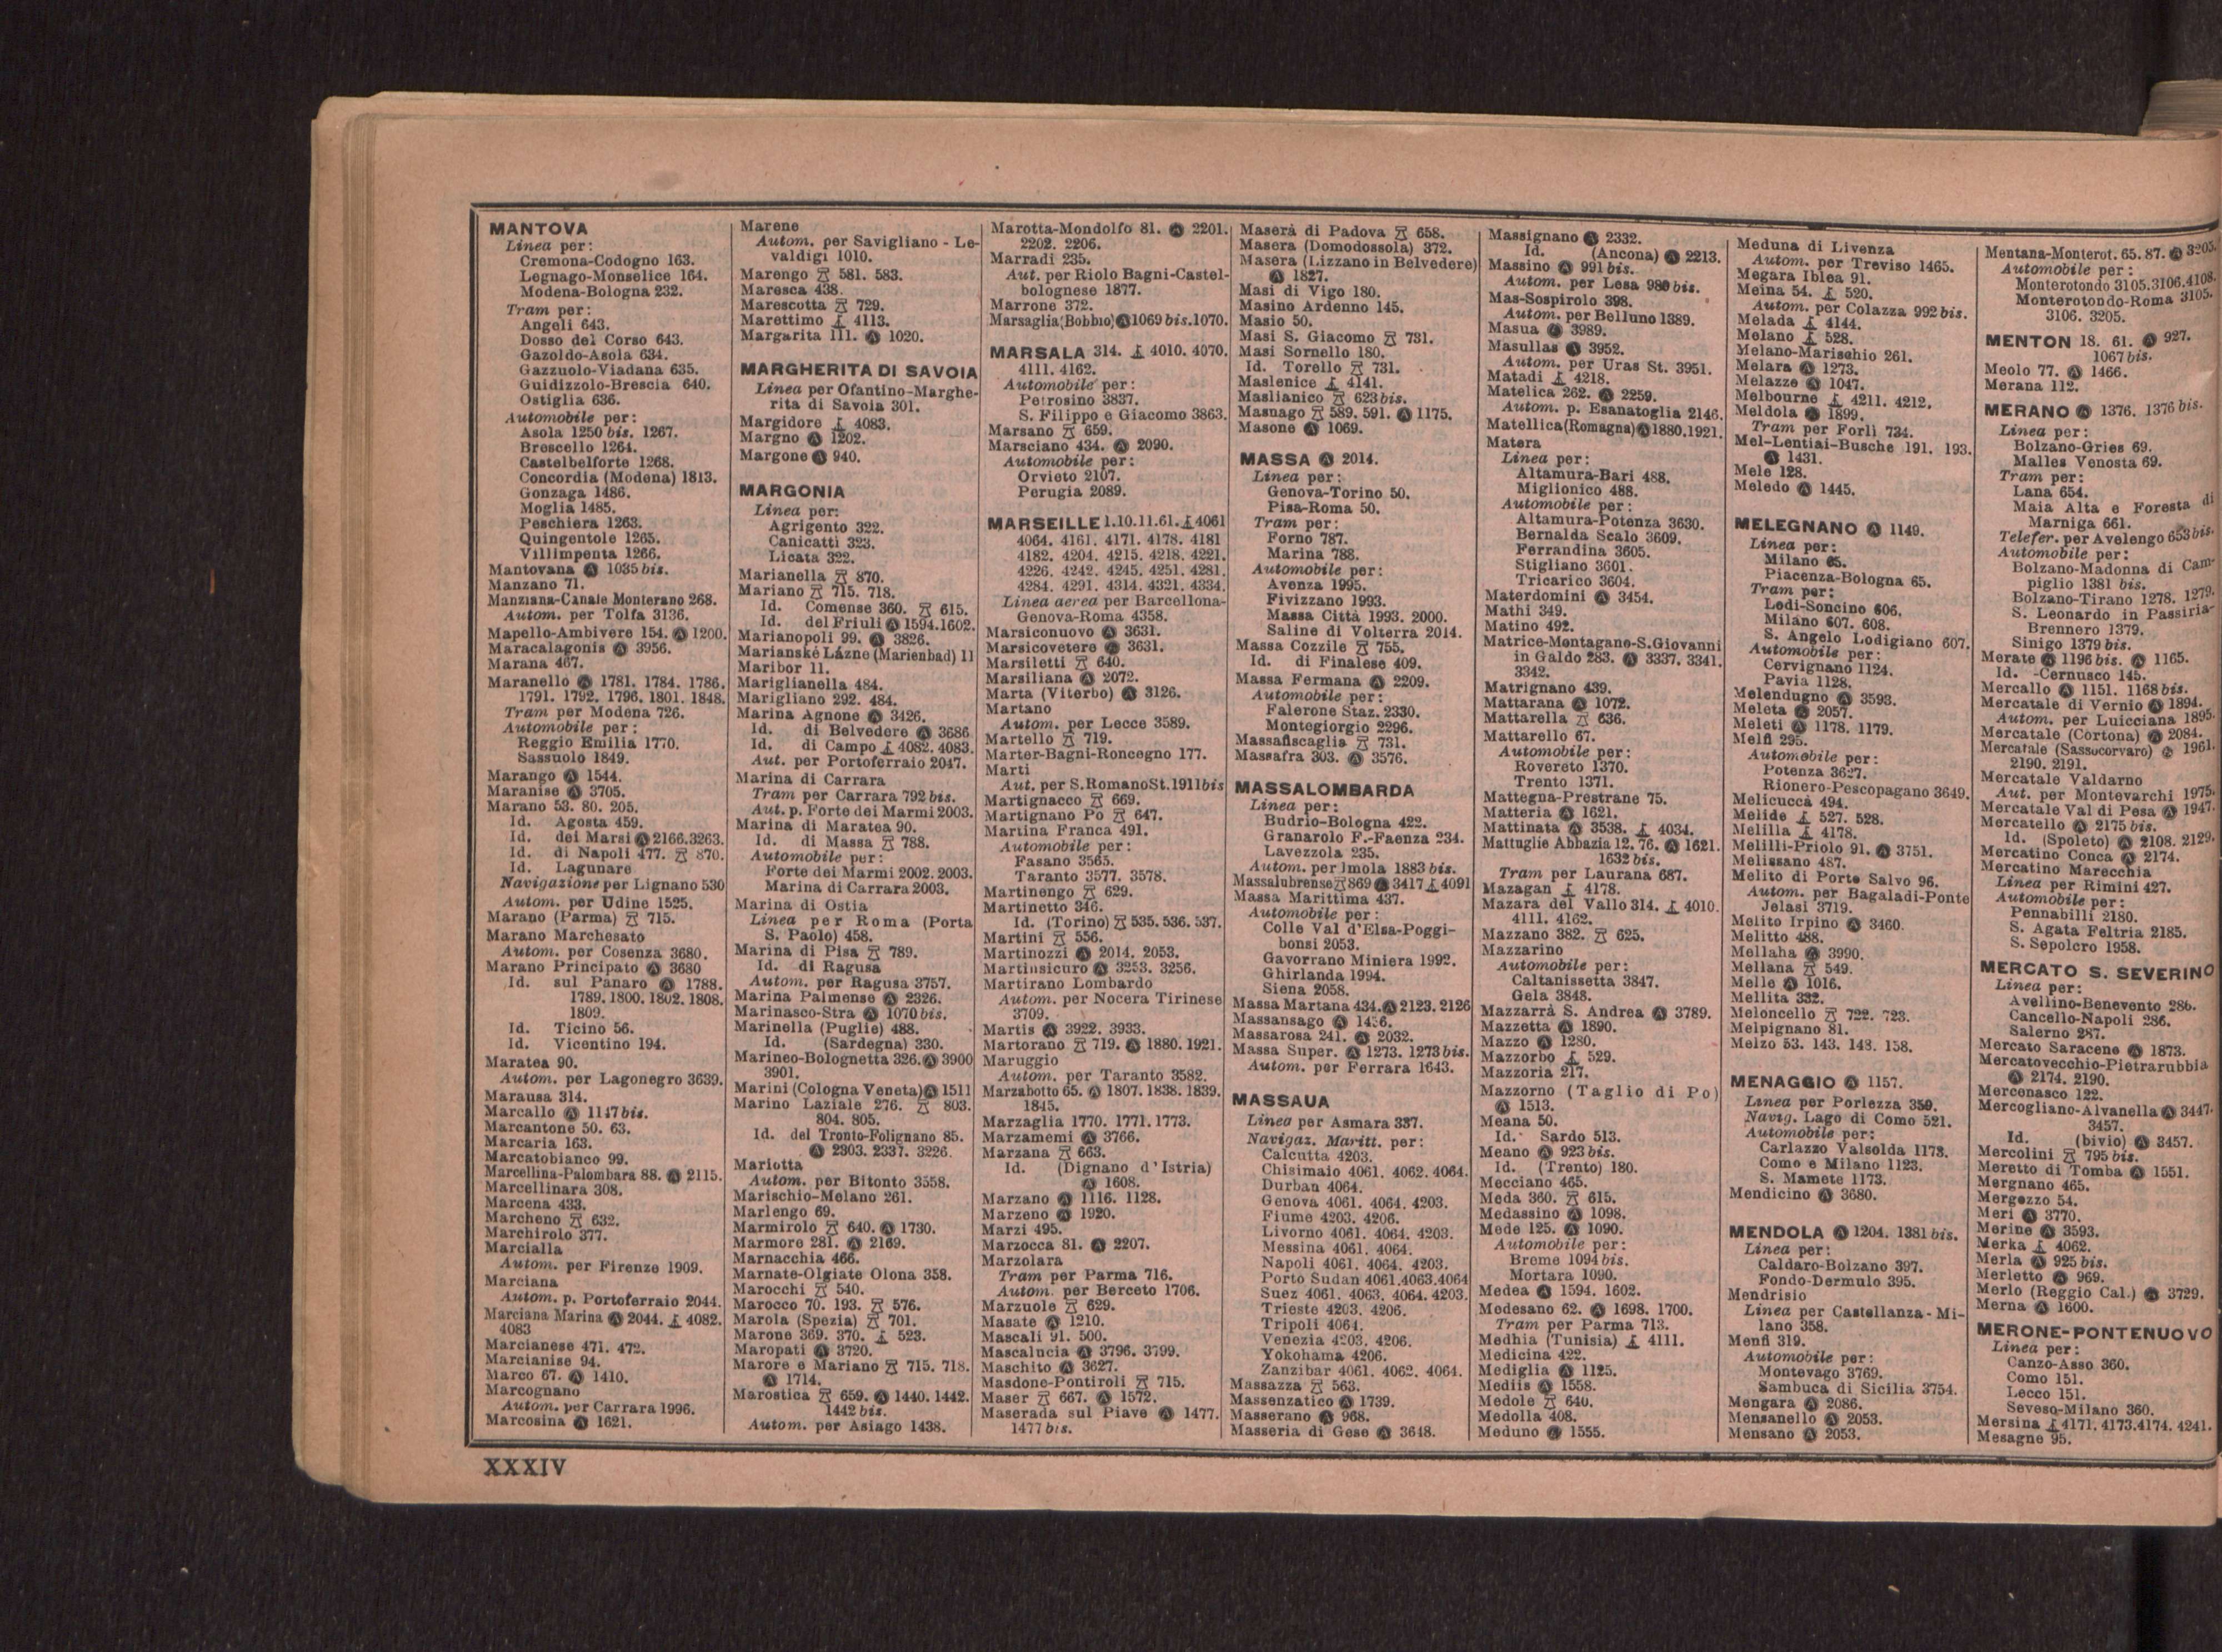 MANTOVA
Linea per:
Cremona-Codogno 163.
Legnago-Monselice 164.
Modena-Bologna 232.
Tram per:
Angeli 643.
Dosso del Corso 643.
Gazoldo-Asola 634.
Gazzuolo-Viadana 635.
Guidizzolo-Brescia 640.
Ostiglia 636.
Automobile per:
Asola 1250 bis. 1267.
Brescello 1264.
Castelbelforte 1268.
Concordia (Modena) 1813.
Gonzaga 1486.
Moglia 1485.
Peschiera 1263.
Quingentole 1265.
Villimpenta 1266.
Mantovana Ⓐ 1035 bis.
Manzano 71.
Manziana-Canale Monterano 268.
Autom. per Tolfa 3136.
Mapello-Ambivere 154. Ⓐ 1200.
Maracalagonis Ⓐ 3956.
Marana 467.
Maranello Ⓐ 1781. 1784. 1786.
1791. 1792. 1796. 1801. 1848.
Tram per Modena 726.
Automobile per:
Reggio Emilia 1770.
Sassuolo 1849.
Marango Ⓐ 1544.
Maranise Ⓐ 3705.
Marano 53. 80. 205.
Id. Agosta 459.
Id. dei Marsi Ⓐ 2166.3263.
Id. di Napoli 477. 870.
Id. Lagunare
Navigazione per Lignano 530
Autom. per Udine 1525.
Marano (Parma) 715.
Marano Marchesato
Autom. per Cosenza 3680.
Marano Principato Ⓐ 3680
Id. sul Panaro Ⓐ 1788.
1789. 1800. 1802. 1808.
1809.
Id. Ticino 56.
Id. Vicentino 194.
Maratea 90.
Autom. per Lagonegro 3639.
Marausa 314.
Marcallo Ⓐ 1147 bis.
Marcantone 50. 63.
Marcaria 163.
Marcatobianco 99.
Marcellina-Palombara 88. Ⓐ 2115.
Marcellinara 308.
Marcena 433.
Marcheno 632.
Marchirolo 377.
Marcialla
Autom. per Firenze 1909.
Marciana
Autom. p. Portoferraio 2044.
Marciana Marina Ⓐ 2044. 4082.
4083
Marcianese 471. 472.
Marcianise 94.
Marco 67. Ⓐ 1410.
Marcognano
Autom. per Carrara 1996.
Marcosina Ⓐ 1621.
Marene
Autom. per Savigliano - Le-
valdigi 1010.
Marengo 581. 583.
Maresca 438.
Marescotta 729.
Marettimo 4113.
Margarita 111. Ⓐ 1020.
MARGHERITA DI SAVOIA
Linea per Ofantino-Marghe-
rita di Savoia 301.
Margidore 4083.
Margno Ⓐ 1202.
Margone Ⓐ 940.
MARGONIA
Linea per:
Agrigento 322.
Canicatti 323.
Licata 322.
Marianella 870.
Mariano 715. 718.
Id. Comense 360. 615.
Id. del Friuli Ⓐ 1594.1602.
Marianopoli 99. Ⓐ 3826.
Marianské Lázne (Marienbad) 11
Maribor 11.
Mariglianella 484.
Marigliano 292. 484.
Marina Agnone Ⓐ 3426.
Id. di Belvedere Ⓐ 3686
Id. di Campo 4082. 4083.
Aut. per Portoferraio 2047.
Marina di Carrara
Tram per Carrara 792 bis.
Aut. p. Forte dei Marmi 2003.
Marina di Maratea 90.
Id. di Massa 788.
Automobile per:
Forte dei Marmi 2002. 2003.
Marina di Carrara 2003.
Marina di Ostia
Linea per Roma (Porta
S. Paolo) 458.
Marina di Pisa 789.
Id. di Ragusa
Autom. per Ragusa 3757.
Marina Palmense Ⓐ 2326.
Marinasco-Stra Ⓐ 1070 bis.
Marinella (Puglie) 488.
Id. (Sardegna) 330.
Marineo-Bolognetta 326. Ⓐ 3900
3901.
Marini (Cologna Veneta) Ⓐ 1511
Marino Laziale 276. 803.
804. 805.
Id. del Tronto-Folignano 85.
Ⓐ 2303. 2337. 3226.
Mariotta
Autom. per Bitonto 3558.
Marischio-Melano 261.
Marlengo 69.
Marmirolo 640. Ⓐ 1730.
Marmore 281. Ⓐ 2169.
Marnacchia 466.
Marnate-Olgiate Olona 358.
Marocchi 540.
Marocco 70. 193. 576.
Marola (Spezia) 701.
Marone 369. 370. 523.
Maropati Ⓐ 3720.
Marore e Mariano 715. 718.
Ⓐ 1714.
Marostica 659. Ⓐ 1440. 1442.
1442 bis.
Autom. per Asiago 1438.
Marotta-Mondolfo 81. Ⓐ 2201.
2202. 2206.
Marradi 235.
Aut. per Riolo Bagni-Castel-
bolognese 1877.
Marrone 372.
Marsaglia (Bobbio) Ⓐ 1069 bis.1070.
MARSALA 314. 4010. 4070.
4111. 4162.
Automobile per:
Petrosino 3837.
S. Filippo e Giacomo 3863.
Marsano 659.
Marsciano 434. Ⓐ 2090.
Automobile per:
Orvieto 2107.
Perugia 2089.
MARSEILLE 1.10.11.61. 4061
4064. 4161. 4171. 4178. 4181
4182. 4204. 4215. 4218. 4221.
4226. 4242. 4245. 4251. 4281.
4284. 4291. 4314. 4321. 4334.
Linea aerea per Barcellona-
Genova-Roma 4358.
Marsiconuovo Ⓐ 3631.
Marsicovetere Ⓐ 3631.
Marsiletti 640.
Marsiliana Ⓐ 2072.
Marta (Viterbo) Ⓐ 3126.
Martano
Autom. per Lecce 3589.
Martello 719.
Marter-Bagni-Roncegno 177.
Marti
Aut. per S. Romano St. 1911 bis
Martignacco 669.
Martignano Po 647.
Martina Franca 491.
Automobile per:
Fasano 3565.
Taranto 3577. 3578.
Martinengo 629.
Martinetto 346.
Id. (Torino) 535. 536. 537.
Martini 556.
Martinozzi Ⓐ 2014. 2053.
Martinsicuro Ⓐ 3253. 3256.
Martirano Lombardo
Autom. per Nocera Tirinese
3709.
Martis Ⓐ 3922. 3933.
Martorano 719. Ⓐ 1880. 1921.
Maruggio
Autom. per Taranto 3582.
Marzabotto 65. Ⓐ 1807. 1838. 1839.
1845.
Marzaglia 1770. 1771. 1773.
Marzamemi Ⓐ 3766.
Marzana 663.
Id. (Dignano d'Istria)
Ⓐ 1608.
Marzano Ⓐ 1116. 1128.
Marzeno Ⓐ 1920.
Marzi 495.
Marzocca 81. Ⓐ 2207.
Marzolara
Tram per Parma 716.
Autom. per Berceto 1706.
Marzuole 629.
Masate Ⓐ 1210.
Mascali 91. 500.
Mascalucia Ⓐ 3796. 3799.
Maschito Ⓐ 3627.
Masdone-Pontiroli 715.
Maser 667. Ⓐ 1572.
Maserada sul Piave Ⓐ 1477.
1477 bis.
Maserà di Padova 658.
Masera (Domodossola) 372.
Masera (Lizzano in Belvedere)
Ⓐ 1827.
Masi di Vigo 180.
Masino Ardenno 145.
Masio 50.
Masi S. Giacomo 731.
Masi Sornello 180.
Id. Torello 731.
Maslenice 4141.
Maslianico 623 bis.
Masnago 589. 591. Ⓐ 1175.
Masone Ⓐ 1069.
MASSA Ⓐ 2014.
Linea per:
Genova-Torino 50.
Pisa-Roma 50.
Tram per:
Forno 787.
Marina 788.
Automobile per:
Avenza 1995.
Fivizzano 1993.
Massa Città 1993. 2000.
Saline di Volterra 2014.
Massa Cozzile 755.
Id. di Finalese 409.
Massa Fermana Ⓐ 2209.
Automobile per:
Falerone Staz. 2330.
Montegiorgio 2296.
Massafiscaglia 731.
Massafra 303. Ⓐ 3576.
MASSALOMBARDA
Linea per:
Budrio-Bologna 422.
Granarolo F.-Faenza 234.
Lavezzola 235.
Autom. per Imola 1883 bis.
Massalubrense 869 Ⓐ 3417 4091
Massa Marittima 437.
Automobile per:
Colle Val d'Elsa-Poggi-
bonsi 2053.
Gavorrano Miniera 1992.
Ghirlanda 1994.
Siena 2058.
Massa Martana 434. Ⓐ 2123. 2126
Massansago Ⓐ 1456.
Massarosa 241. Ⓐ 2032.
Massa Super. Ⓐ 1273. 1273 bis.
Autom. per Ferrara 1643.
MASSAUA
Linea per Asmara 337.
Navigaz. Maritt. per:
Calcutta 4203.
Chisimaio 4061. 4062. 4064.
Durban 4064.
Genova 4061. 4064. 4203.
Fiume 4203. 4206.
Livorno 4061. 4064. 4203.
Messina 4061. 4064.
Napoli 4061. 4064. 4203.
Porto Sudan 4061.4063.4064
Suez 4061. 4063. 4064. 4203.
Trieste 4203. 4206.
Tripoli 4064.
Venezia 4203. 4206.
Yokohama 4206.
Zanzibar 4061. 4062. 4064.
Massazza 563.
Massenzatico Ⓐ 1739.
Masserano Ⓐ 968.
Masseria di Gese Ⓐ 3648.
Massignano Ⓐ 2332.
Id. (Ancona) Ⓐ 2213.
Massino Ⓐ 991 bis.
Autom. per Lesa 980 bis.
Mas-Sospirolo 398.
Autom. per Belluno 1389.
Masua Ⓐ 3989.
Masullas Ⓐ 3952.
Autom. per Uras St. 3951.
Matadi 4218.
Matelica 262. Ⓐ 2259.
Autom. p. Esanatoglia 2146.
Matellica (Romagna) Ⓐ 1880.1921.
Matera
Linea per:
Altamura-Bari 488.
Miglionico 488.
Automobile per:
Altamura-Potenza 3630.
Bernalda Scalo 3609.
Ferrandina 3605.
Stigliano 3601.
Tricarico 3604.
Materdomini Ⓐ 3454.
Mathi 349.
Matino 492.
Matrice-Montagano-S.Giovanni
in Galdo 283. Ⓐ 3337. 3341.
3342.
Matrignano 439.
Mattarana Ⓐ 1072.
Mattarella 636.
Mattarello 67.
Automobile per:
Rovereto 1370.
Trento 1371.
Mattegna-Prestrane 75.
Matteria Ⓐ 1621.
Mattinata Ⓐ 3538. 4034.
Mattuglie Abbazia 12. 76. Ⓐ 1621.
1632 bis.
Tram per Laurana 687.
Mazagan 4178.
Mazara del Vallo 314. 4010.
4111. 4162.
Mazzano 382. 625.
Mazzarino
Automobile per:
Caltanissetta 3847.
Gela 3848.
Mazzarrà S. Andrea Ⓐ 3789.
Mazzetta Ⓐ 1890.
Mazzo Ⓐ 1280.
Mazzorbo 529.
Mazzoria 217.
Mazzorno (Taglio di Po)
Ⓐ 1513.
Meana 50.
Id. Sardo 513.
Meano Ⓐ 923 bis.
Id. (Trento) 180.
Mecciano 465.
Meda 360. 615.
Medassino Ⓐ 1098.
Mede 125. Ⓐ 1090.
Automobile per:
Breme 1094 bis.
Mortara 1090.
Medea Ⓐ 1594. 1602.
Modesano 62. Ⓐ 1698. 1700.
Tram per Parma 713.
Medhia (Tunisia) 4111.
Medicina 422.
Mediglia Ⓐ 1125.
Mediis Ⓐ 1558.
Medole 640.
Medolla 408.
Meduno Ⓐ 1555.
Meduna di Livenza
Autom. per Treviso 1465.
Megara Iblea 91.
Meina 54. 520.
Autom. per Colazza 992 bis.
Melada 4144.
Melano 528.
Melano-Marischio 261.
Melara Ⓐ 1273.
Melazzo Ⓐ 1047.
Melbourne 4211. 4212.
Meldola Ⓐ 1899.
Tram per Forlì 734.
Mel-Lentiai-Busche 191. 193.
Ⓐ 1431.
Mele 128.
Meledo Ⓐ 1445.
MELEGNANO Ⓐ 1149.
Linea per:
Milano 65.
Piacenza-Bologna 65.
Tram per:
Lodi-Soncino 606.
Milano 607. 608.
S. Angelo Lodigiano 607.
Automobile per:
Cervignano 1124.
Pavia 1128.
Melendugno Ⓐ 3593.
Meleta Ⓐ 2057.
Meleti Ⓐ 1178. 1179.
Melfi 295.
Automobile per:
Potenza 3627.
Rionero-Pescopagano 3649.
Melicuccà 494.
Melide 527. 528.
Melilla 4178.
Melilli-Priolo 91. Ⓐ 3751.
Melissano 487.
Melito di Porto Salvo 96.
Autom. per Bagaladi-Ponte
Jelasi 3719.
Melito Irpino Ⓐ 3460.
Melitto 488.
Mellaha Ⓐ 3990.
Mellana 549.
Melle Ⓐ 1016.
Mellita 332.
Meloncello 722. 723.
Melpignano 81.
Melzo 53. 143. 148. 158.
MENAGGIO Ⓐ 1157.
Linea per Porlezza 359.
Navig. Lago di Como 521.
Automobile per:
Carlazzo Valsolda 1173.
Como e Milano 1123.
S. Mamete 1173.
Mendicino Ⓐ 3680.
MENDOLA Ⓐ 1204. 1381 bis.
Linea per:
Caldaro-Bolzano 397.
Fondo-Dermulo 395.
Mendrisio
Linea per Castellanza - Mi-
lano 358.
Menfi 319.
Automobile per:
Montevago 3769.
Sambuca di Sicilia 3754.
Mengara Ⓐ 2086.
Mensanello Ⓐ 2053.
Mensano Ⓐ 2053.
Mentana-Monterot. 65. 87. Ⓐ 3205.
Automobile per:
Monterotondo 3105.3106.4108.
Monterotondo-Roma 3105.
3106. 3205.
MENTON 18. 61. Ⓐ 927.
1067 bis.
Meolo 77. Ⓐ 1466.
Merana 112.
MERANO Ⓐ 1376. 1376 bis.
Linea per:
Bolzano-Gries 69.
Malles Venosta 69.
Tram per:
Lana 654.
Maia Alta e Foresta di
Marniga 661.
Telefer. per Avelengo 653 bis.
Automobile per:
Bolzano-Madonna di Cam-
piglio 1381 bis.
Bolzano-Tirano 1278. 1279.
S. Leonardo in Passiria-
Brennero 1379.
Sinigo 1379 bis.
Merate Ⓐ 1196 bis. Ⓐ 1165.
Id. -Cernusco 145.
Mercallo Ⓐ 1151. 1168 bis.
Mercatale di Vernio Ⓐ 1894.
Autom. per Luicciana 1895.
Mercatale (Cortona) Ⓐ 2084.
Mercatale (Sassocorvaro) Ⓐ 1961.
2190. 2191.
Mercatale Valdarno
Aut. per Montevarchi 1975.
Mercatale Val di Pesa Ⓐ 1947.
Mercatello Ⓐ 2175 bis.
Id. (Spoleto) Ⓐ 2108. 2129.
Mercatino Conca Ⓐ 2174.
Mercatino Marecchia
Linea per Rimini 427.
Automobile per:
Pennabilli 2180.
S. Agata Feltria 2185.
S. Sepolcro 1958.
MERCATO S. SEVERINO
Linea per:
Avellino-Benevento 286.
Cancello-Napoli 286.
Salerno 287.
Mercato Saraceno Ⓐ 1873.
Mercatovecchio-Pietrarubbia
Ⓐ 2174. 2190.
Mercenasco 122.
Mercogliano-Alvanella Ⓐ 3447.
3457.
Id. (bivio) Ⓐ 3457.
Mercolini 795 bis.
Meretto di Tomba Ⓐ 1551.
Mergnano 465.
Mergozzo 54.
Meri Ⓐ 3770.
Merine Ⓐ 3593.
Merka 4062.
Merla Ⓐ 925 bis.
Merletto Ⓐ 969.
Merlo (Reggio Cal.) Ⓐ 3729.
Merna Ⓐ 1600.
MERONE-PONTENUOVO
Linea per:
Canzo-Asso 360.
Como 151.
Lecco 151.
Seveso-Milano 360.
Mersina 4171. 4173.4174. 4241.
Mesagne 95.
XXXIV